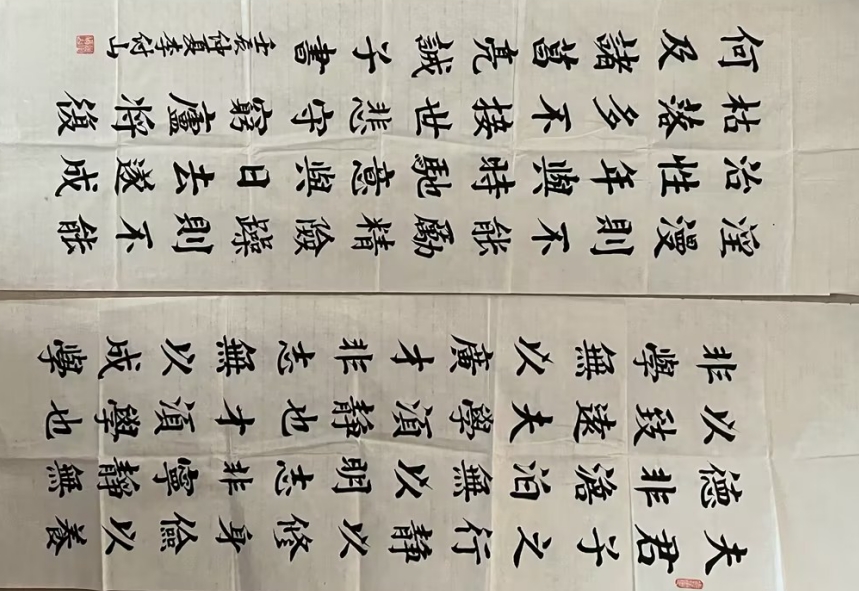 夫君子之行靜以修身儉以養
德非澹泊無以明志非寧靜無
以致遠夫學須靜也才須學也
非學無以廣才非志無以成學
淫漫則不能勵精險躁則不能
治性年與時馳意與日去遂成
枯落多不接世悲守窮廬將復
何及諸葛亮誡子書
壬辰仲夏李付山